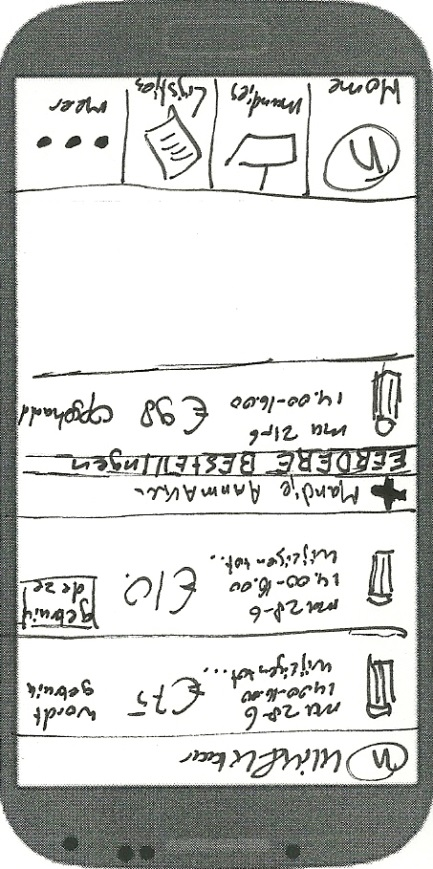 ma 28-6
14.00-16.00
wijzigen tot...
€75
wordt
gebruik
ma 28-6
14.00-16.00
wijzigen tot...
€10.
gebruik
deze
+ Mandje Aanmaken
EERDERE BESTELLINGEN
ma 21-6
14.00-16.00
€98
h
Home
mandjes
Lijstjes
meer